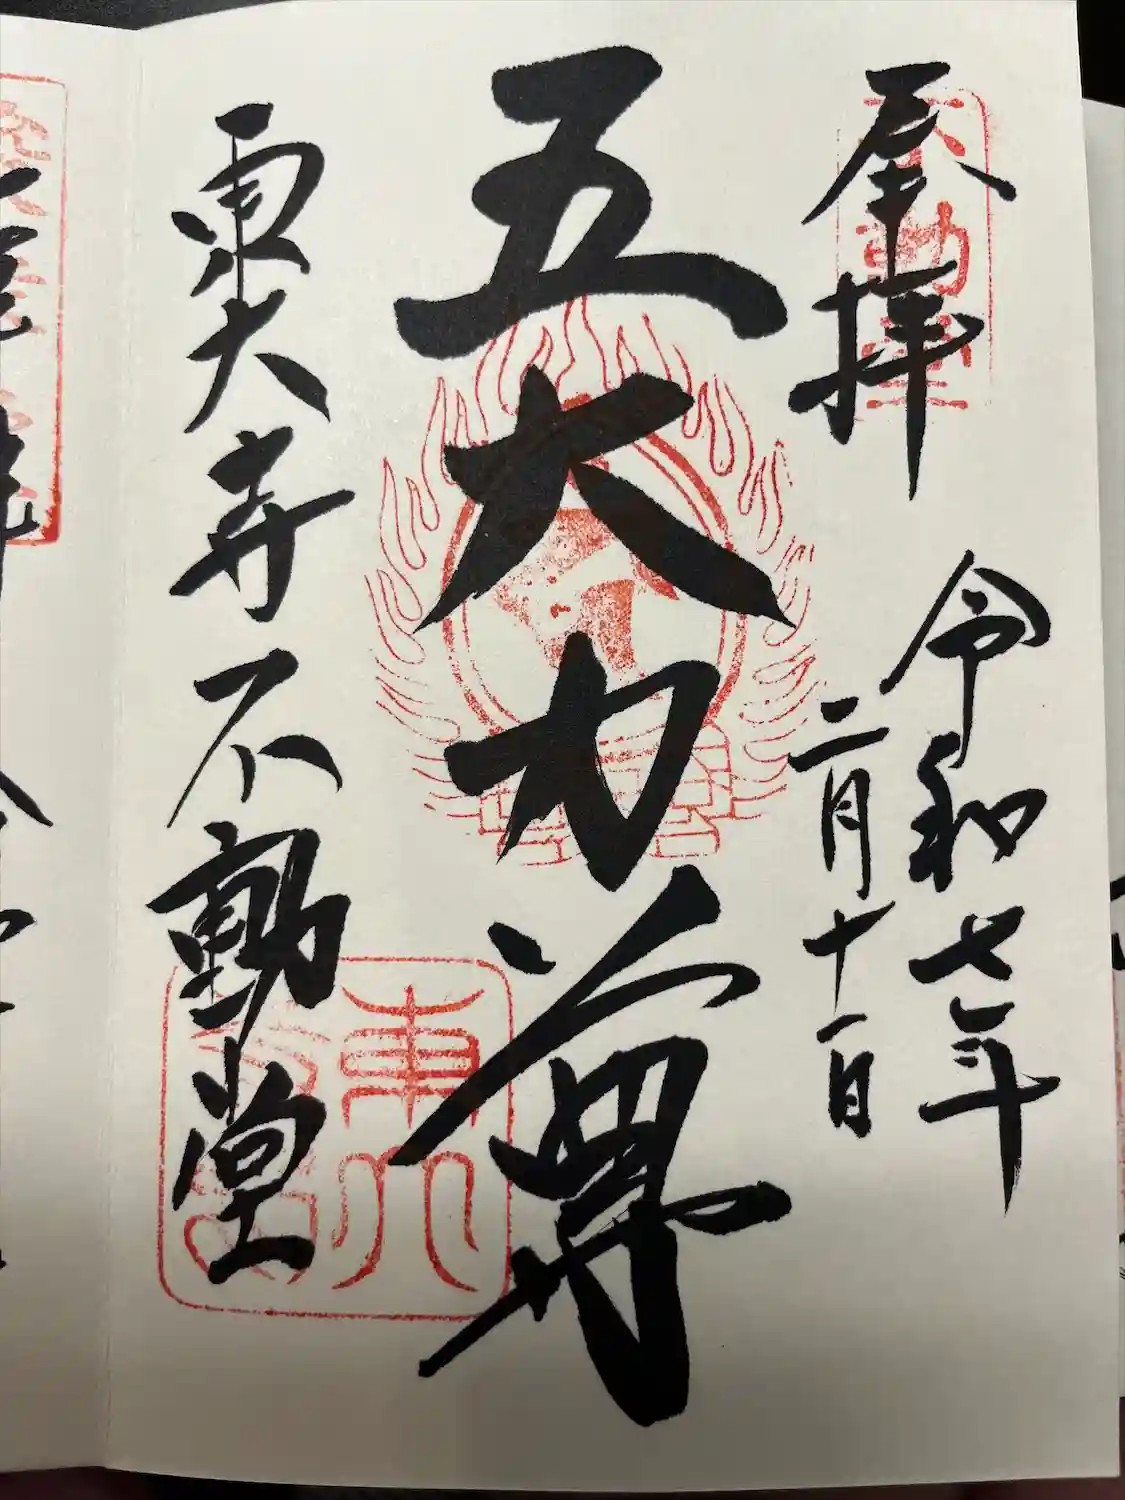 奉拝
不動堂
令和七年
二月十一日
五大力尊
東大寺不動堂
東大